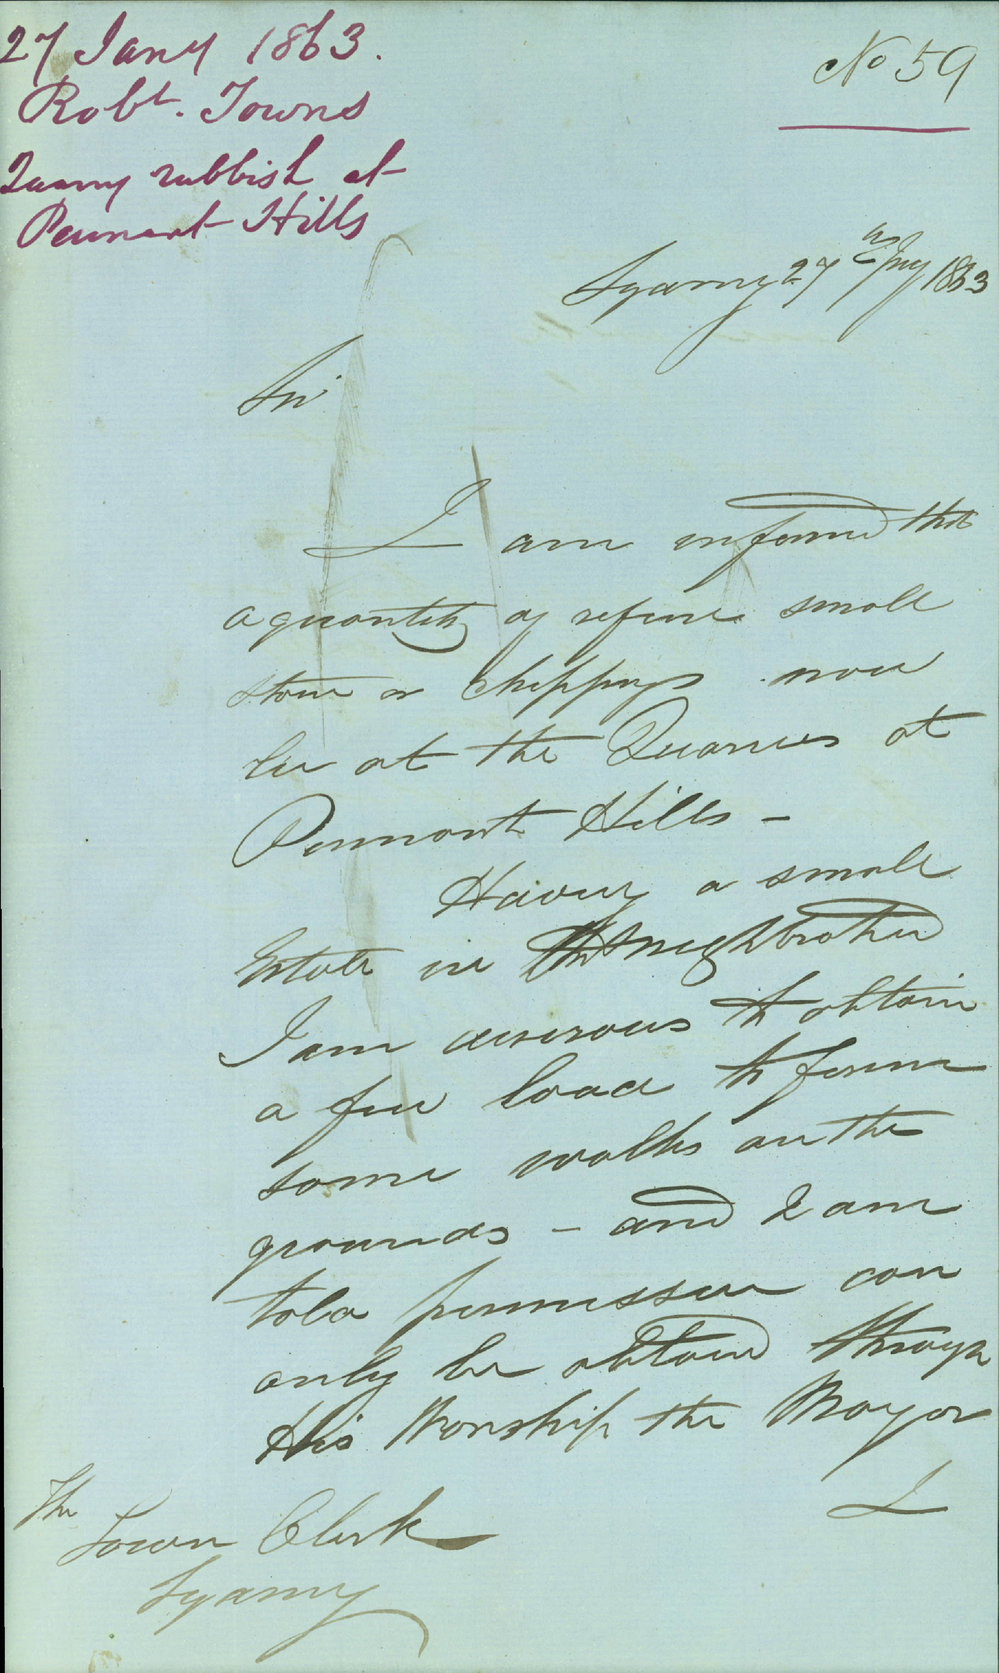 27 Jany 1863.
Robt. Towns
Quarry rubbish at
Pennant Hills
No 59
Sydney 27th Jny 1863
Sir
I am informed that
a quantity of refuse small
stone or chippings now
lie at the Quarries at
Pennant Hills -
Having a small
Estate in the neighbrohood
I am desirous to obtain
a few load to form
some walks on the
grounds - and I am
told permission can
only be obtained through
His Worship the Mayor
I
The
Town Clerk
Sydney